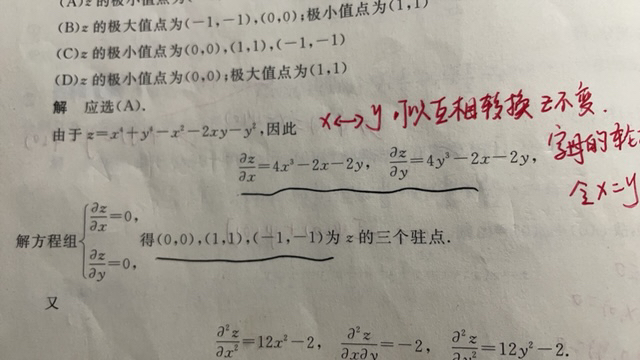 (A)z的极小值点为
(B)z的极大值点为(-1,-1),(0,0);极小值点为(1,1)
(C)z的极小值点为(0,0),(1,1),(-1,-1)
(D)z的极小值点为(0,0);极大值点为(1,1)
解 应选(A).
x↔y,可以互相转换 z不变.
由于z=x⁴+y⁴-x²-2xy-y²,因此
字母的轮
∂z/∂x=4x³-2x-2y, ∂z/∂y=4y³-2x-2y,
令x=y
解方程组{∂z/∂x=0, ∂z/∂y=0, 得(0,0),(1,1),(-1,-1)为z的三个驻点.
又
∂²z/∂x²=12x²-2, ∂²z/∂x∂y=-2, ∂²z/∂y²=12y²-2.